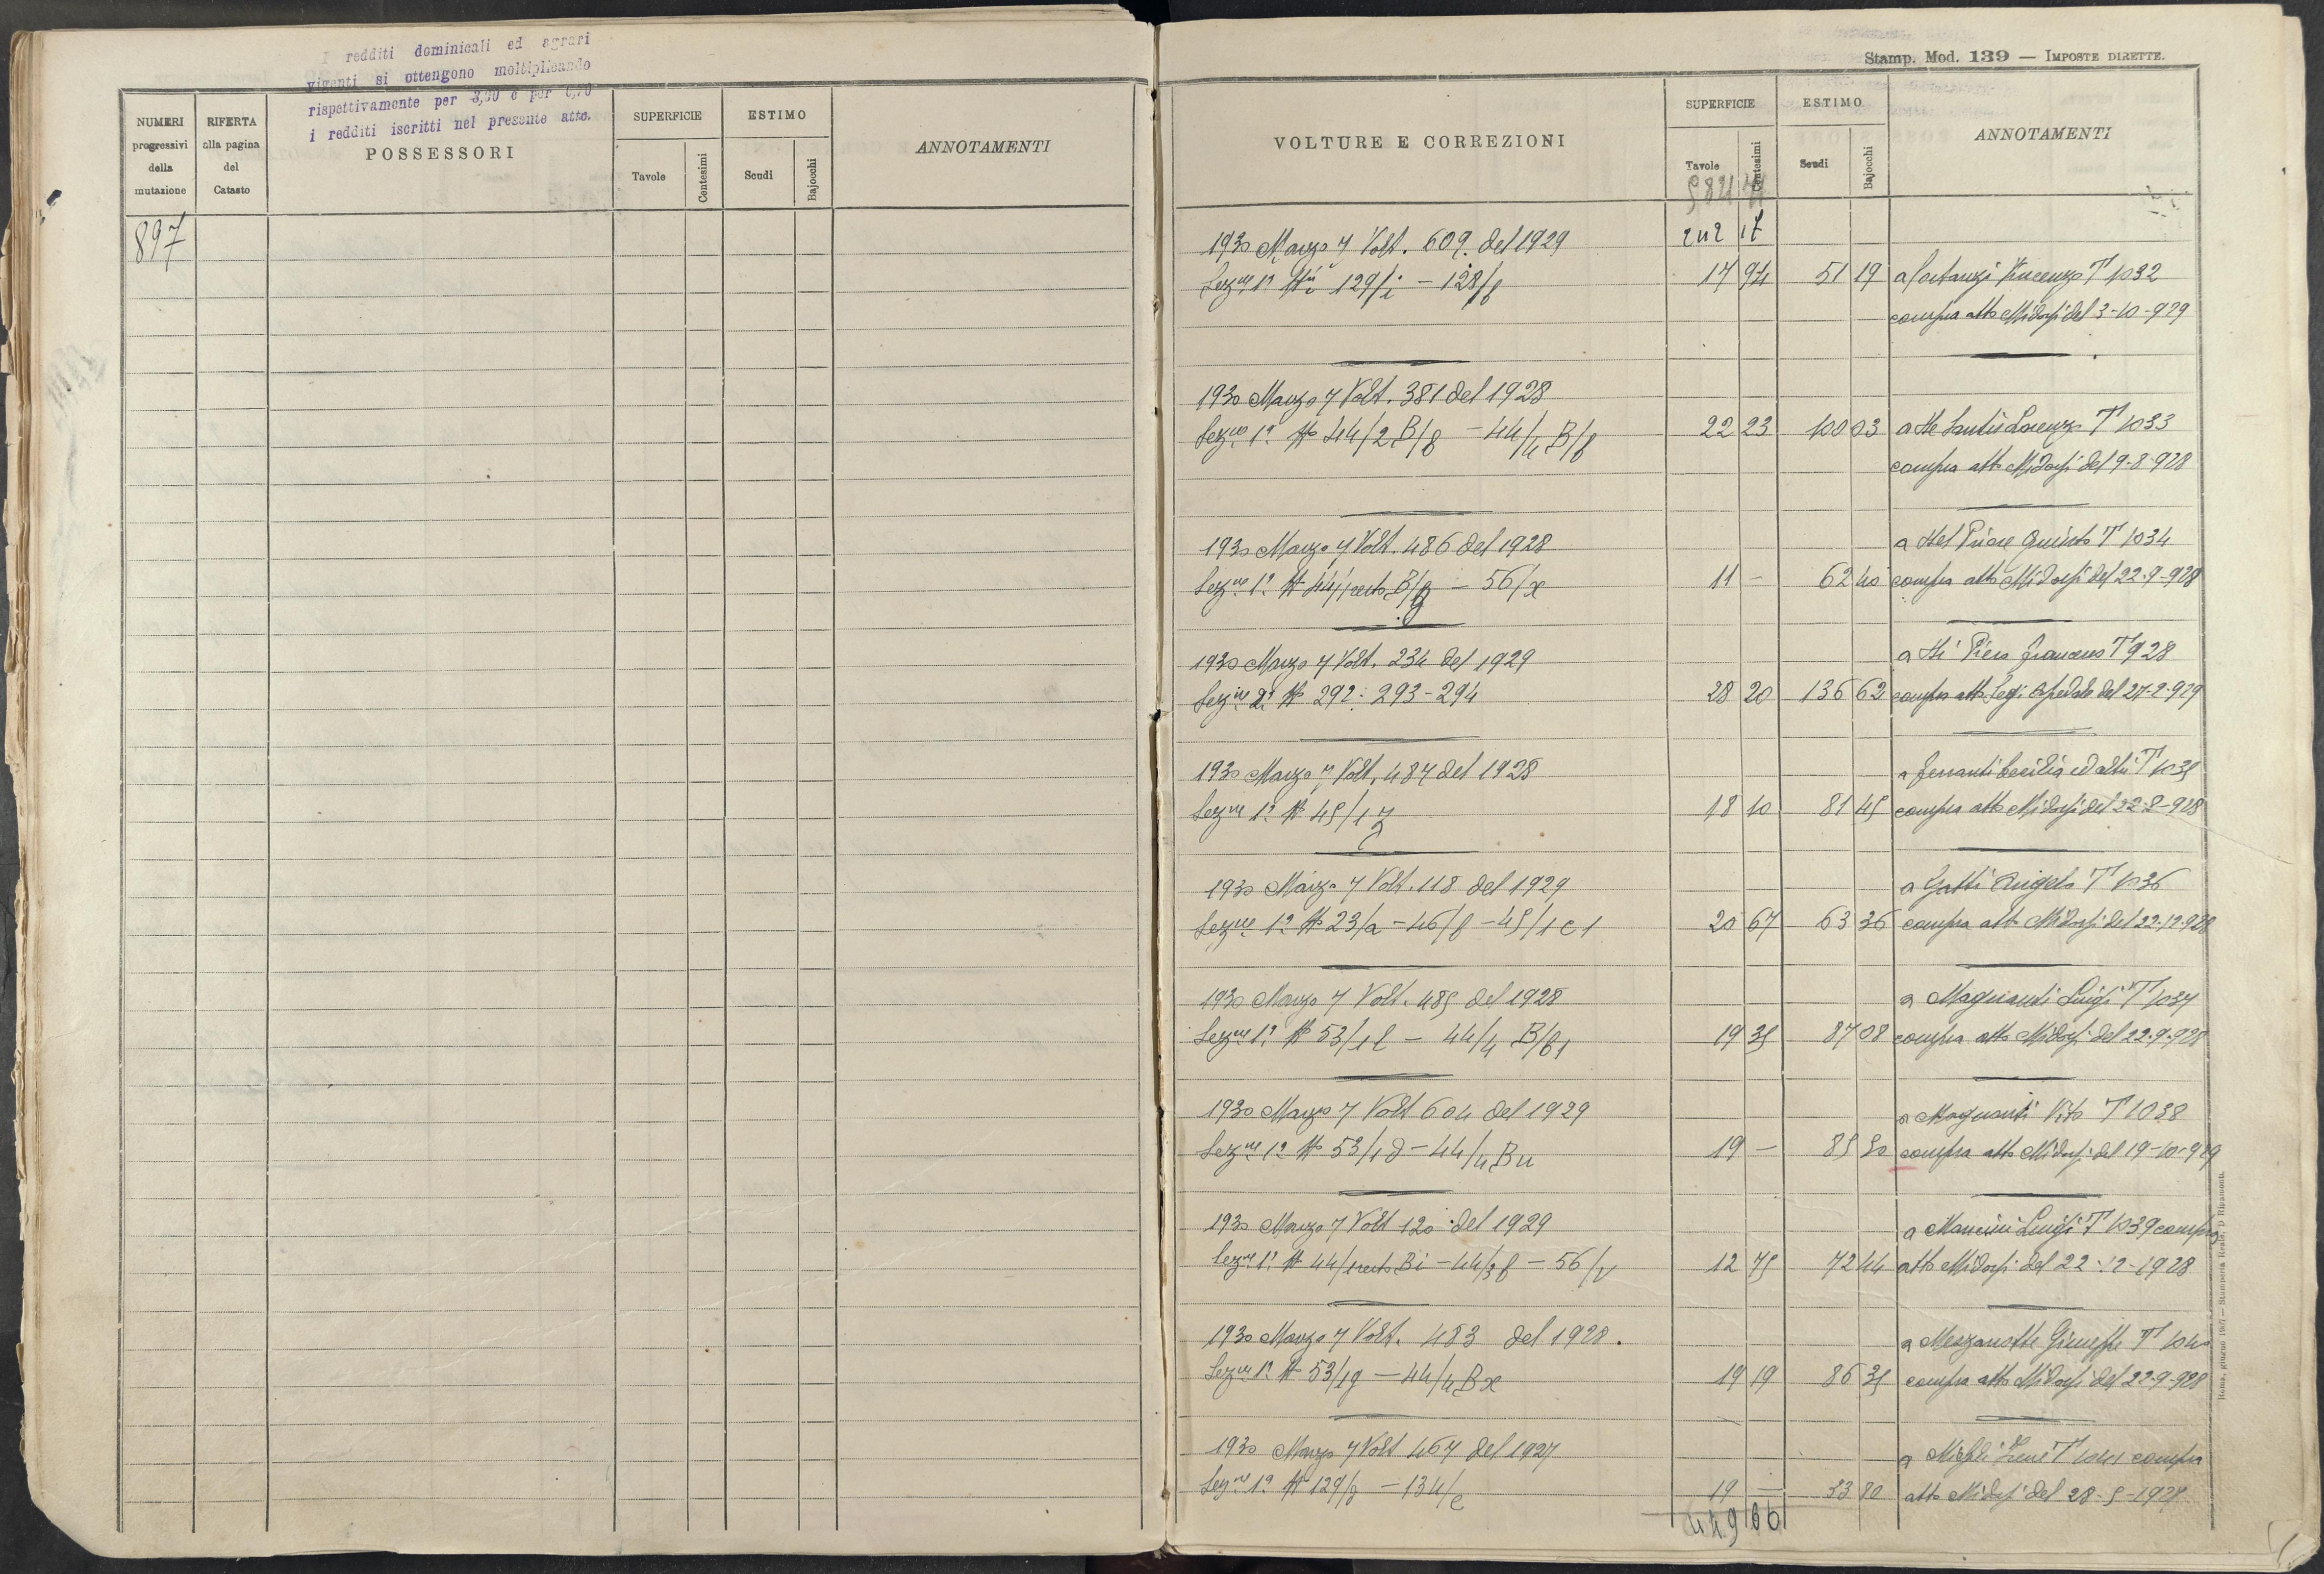 I redditi dominicali ed agrari
vigenti si ottengono moltiplicando
rispettivamente per 3,60 e per 0,70
i redditi iscritti nel presente atto.
NUMERI progressivi della mutazione
RIFERTA alla pagina del Catasto
POSSESSORI
SUPERFICIE
Tavole Centesimi
ESTIMO
Scudi Bajocchi
ANNOTAMENTI
897
Stamp. Mod. 139 — IMPOSTE DIRETTE.
VOLTURE E CORREZIONI
SUPERFICIE
Tavole Centesimi
ESTIMO
Scudi Bajocchi
ANNOTAMENTI
1930 Marzo 7 Volt. 609 del 1929
Sezne 1a No 129/i - 128/f 17 94 51 19 a Vincenzo T 1032
compra atto Midossi del 3-10-929
1930 Marzo 7 Volt. 381 del 1928
Sezne 1a No 44/2 B/f - 44/4 B/f 22 23 100 03 a De Santis Lorenzo T 1033
compra atto Midossi del 9-8-928
1930 Marzo 7 Volt. 486 del 1928 a Del Priore Quinto T 1034
Sezne 1a No 44/1 recto B/g - 56/x 11 - 62 40 compra atto Midossi del 22-9-928
1930 Marzo 7 Volt. 234 del 1929 a Di Piero Francesco T 928
Sezne 2a No 292-293-294 28 20 136 62 compra atto del 27-2-929
1930 Marzo 7 Volt. 487 del 1928 a Ferranti Cecilia ed altri T 1035
Sezne 1a No 45/1 z 18 10 81 45 compra atto Midossi del 22-9-928
1930 Marzo 7 Volt. 118 del 1929 a Gatti Angelo T 1036
Sezne 1a No 23/a - 46/f - 45/1 c 1 20 67 63 36 compra atto Midossi del 22-12-928
1930 Marzo 7 Volt. 485 del 1928 a Magnanti Luigi T 1037
Sezne 1a No 53/1 l - 44/4 B/f1 19 35 87 08 compra atto Midossi del 22-9-928
1930 Marzo 7 Volt 604 del 1929 a Magnanti Vito T 1038
Sezne 1a No 53/1 d - 44/4 B n 19 - 85 50 compra atto Midossi del 19-10-929
1930 Marzo 7 Volt 120 del 1929 a Mancini Luigi T 1039 compra
Sezne 1a No 44/1 recto B i - 44/3 f - 56/v 12 75 72 44 atto Midossi del 22-12-1928
1930 Marzo 7 Volt. 483 del 1928. a Mezzanotte Giuseppe T 1040
Sezne 1a No 53/1 g - 44/4 B x 19 19 86 35 compra atto Midossi del 22-9-928
1930 Marzo 7 Volt 467 del 1927 a T 1041 compra
Sezne 1a No 129/g - 134/e 19 - 33 80 atto Midossi del 28-5-1927
449 66
Roma, giugno 1927 — Stamperia Reale, D. Ripamonti.